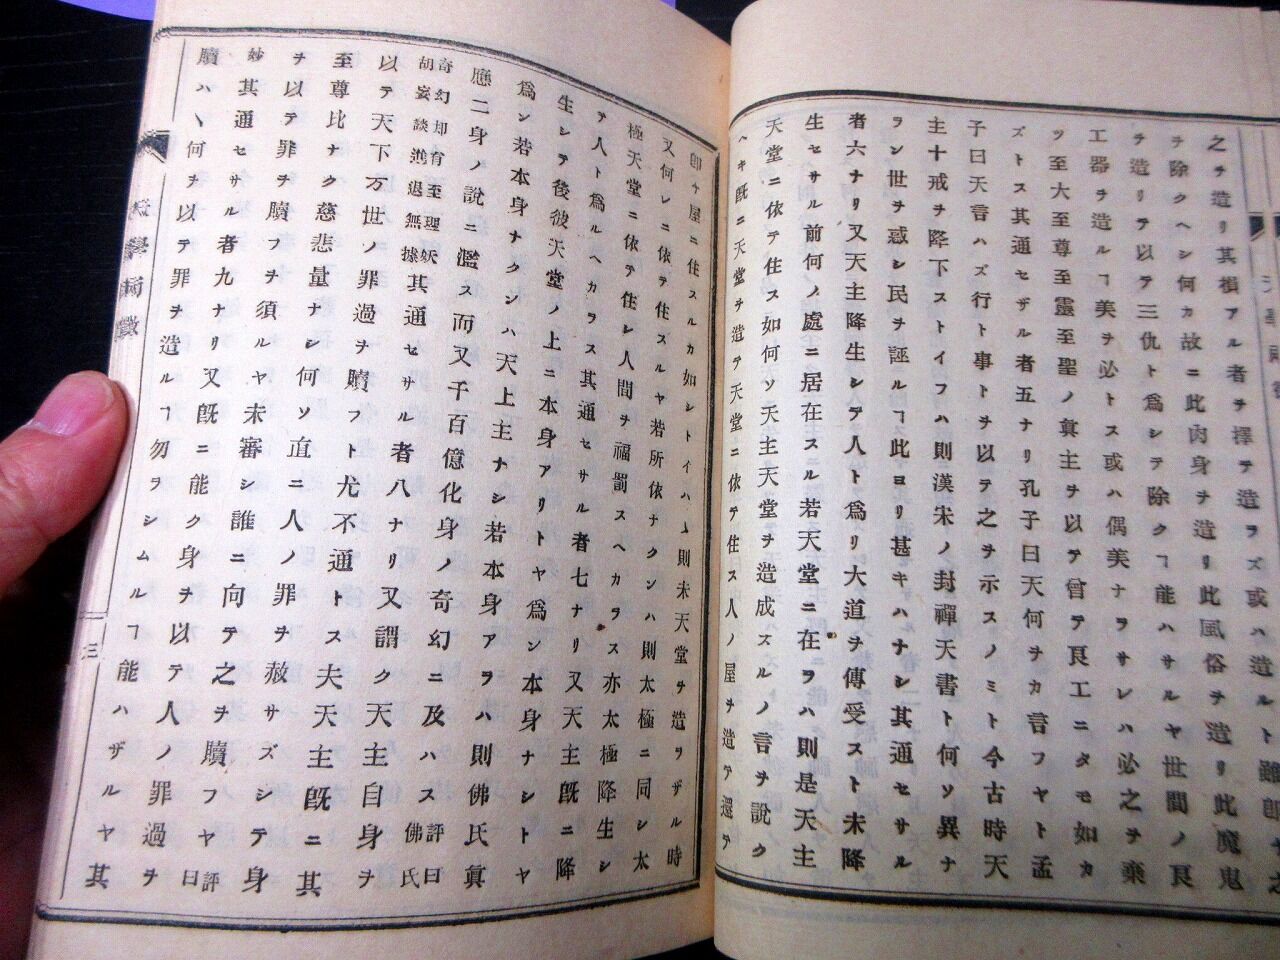 之ヲ造リ其損アル者ヲ擇テ造ヲズ或ハ造ルト雖即之
ヲ除クヘシ何カ故ニ此肉身ヲ造リ此風俗ヲ造リ此魔鬼
ヲ造リテ以テ三仇ト爲シテ除クヿ能ハサルヤ世間ノ良
工器ヲ造ルヿ美ヲ必トス或ハ偶美ナヲサレハ必之ヲ棄
ツ至大至尊至靈至聖ノ眞主ヲ以テ曾テ良工ニタモ如カ
ズトス其通セザル者五ナリ孔子曰天何ヲカ言フヤト孟
子曰天言ハズ行ト事トヲ以テ之ヲ示スノミト今古時天
主十戒ヲ降下ストイフハ則漢宋ノ封禪天書ト何ソ異ナ
ヲン世ヲ惑シ民ヲ誣ルヿ此ヨリ甚キハナシ其通セサル
者六ナリ又天主降生シテ人ト爲リ大道ヲ傳受スト未降
生セサル前何ノ處ニ居在スル若天堂ニ在ヲハ則是天主
天堂ニ依テ住ス如何ソ天主天堂ヲ造成スルノ言ヲ說ク
ヘキ旣ニ天堂ヲ造テ天堂ニ依テ住ス人ノ屋ヲ造テ還テ
卽ケ屋ニ住スルカ如シトイハヽ則未天堂ヲ造ヲザル時
又何レニ依テ住スルヤ若所依ナクンハ則太極ニ同シ太
極天堂ニ依テ住シ人間ヲ福罰スヘカラス亦太極降生シ
テ人ト爲ルヘカラス其通セサル者七ナリ又天主旣ニ降
生シテ後彼天堂ノ上ニ本身アリトヤ爲ン本身ナシトヤ
爲ン若本身ナクンハ天上主ナシ若本身アヲハ則佛氏眞
應二身ノ說ニ濫ス而又千百億化身ノ奇幻ニ及ハス評曰佛氏
奇幻却有至理妖胡妄談進退無據其通セサル者八ナリ又謂ク天主自身ヲ
以テ天下万世ノ罪過ヲ贖フト尤不通トス夫天主旣ニ其
至尊比ナク慈悲量ナシ何ソ直ニ人ノ罪ヲ赦サズシテ身
ヲ以テ罪ヲ贖フヲ須ルヤ未審シ誰ニ向テ之ヲ贖フヤ評曰
妙其通セサル者九ナリ又旣ニ能ク身ヲ以テ人ノ罪過ヲ
贖ハヽ何ヲ以テ罪ヲ造ルヿ勿ラシムルヿ能ハザルヤ其
三